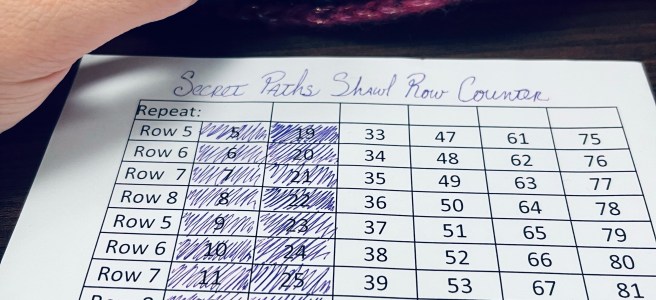 Secret Paths Shawl Row Counter
Repeat:
Row 5 5 19 33 47 61 75
Row 6 6 20 34 48 62 76
Row 7 7 21 35 49 63 77
Row 8 8 22 36 50 64 78
Row 5 9 23 37 51 65 79
Row 6 10 24 38 52 66 80
Row 7 11 25 39 53 67 81